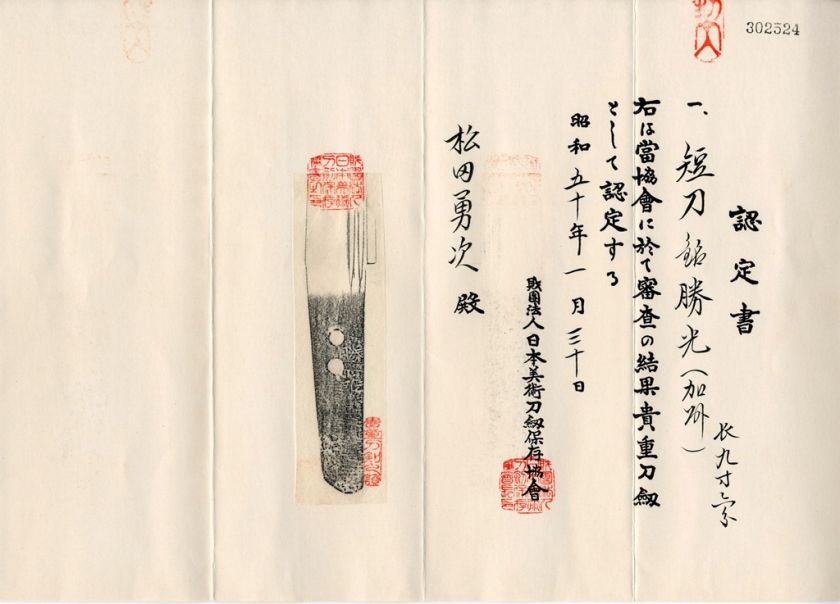 302524
認定書
一、短刀 銘 勝光(加州)
長九寸
右は當協會に於て審査の結果貴重刀劔
として認定する
昭和五十年一月三十日
財團法人日本美術刀劔保存協會
松田勇次殿